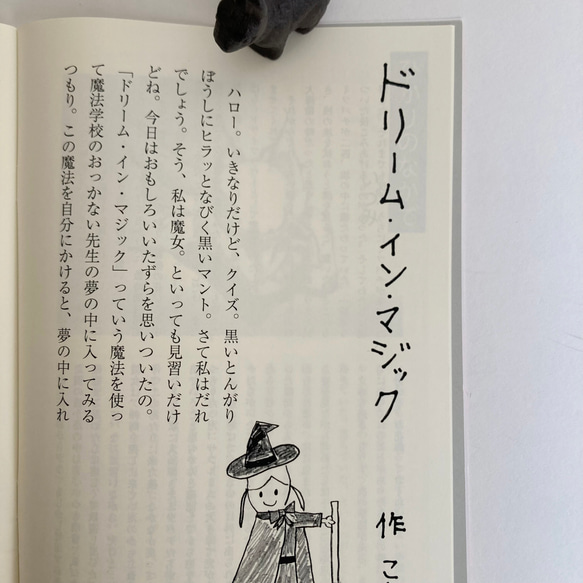 ドリーム・イン・マジック
作 こ
ハロー。いきなりだけど、クイズ。黒いとんがり
ぼうしにヒラッとなびく黒いマント。さて私はだれ
でしょう。そう、私は魔女。といっても見習いだけ
どね。今日はおもしろいいたずらを思いついたの。
「ドリーム・イン・マジック」っていう魔法を使っ
て魔法学校のおっかない先生の夢の中に入ってみる
つもり。この魔法を自分にかけると、夢の中に入れ